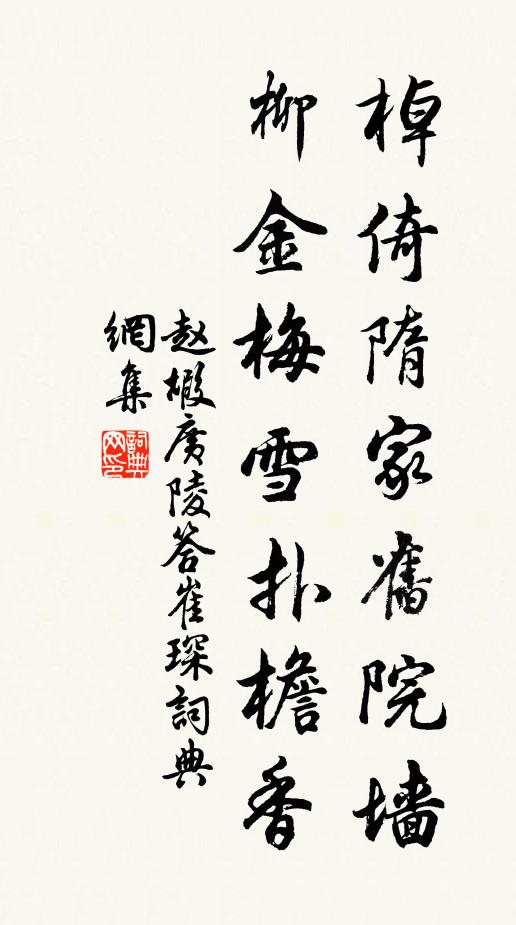 棹倚隋家舊院墙
柳金梅雪扑檐香
赵嘏廣陵答崔琛詞典
網集
詞典
网印